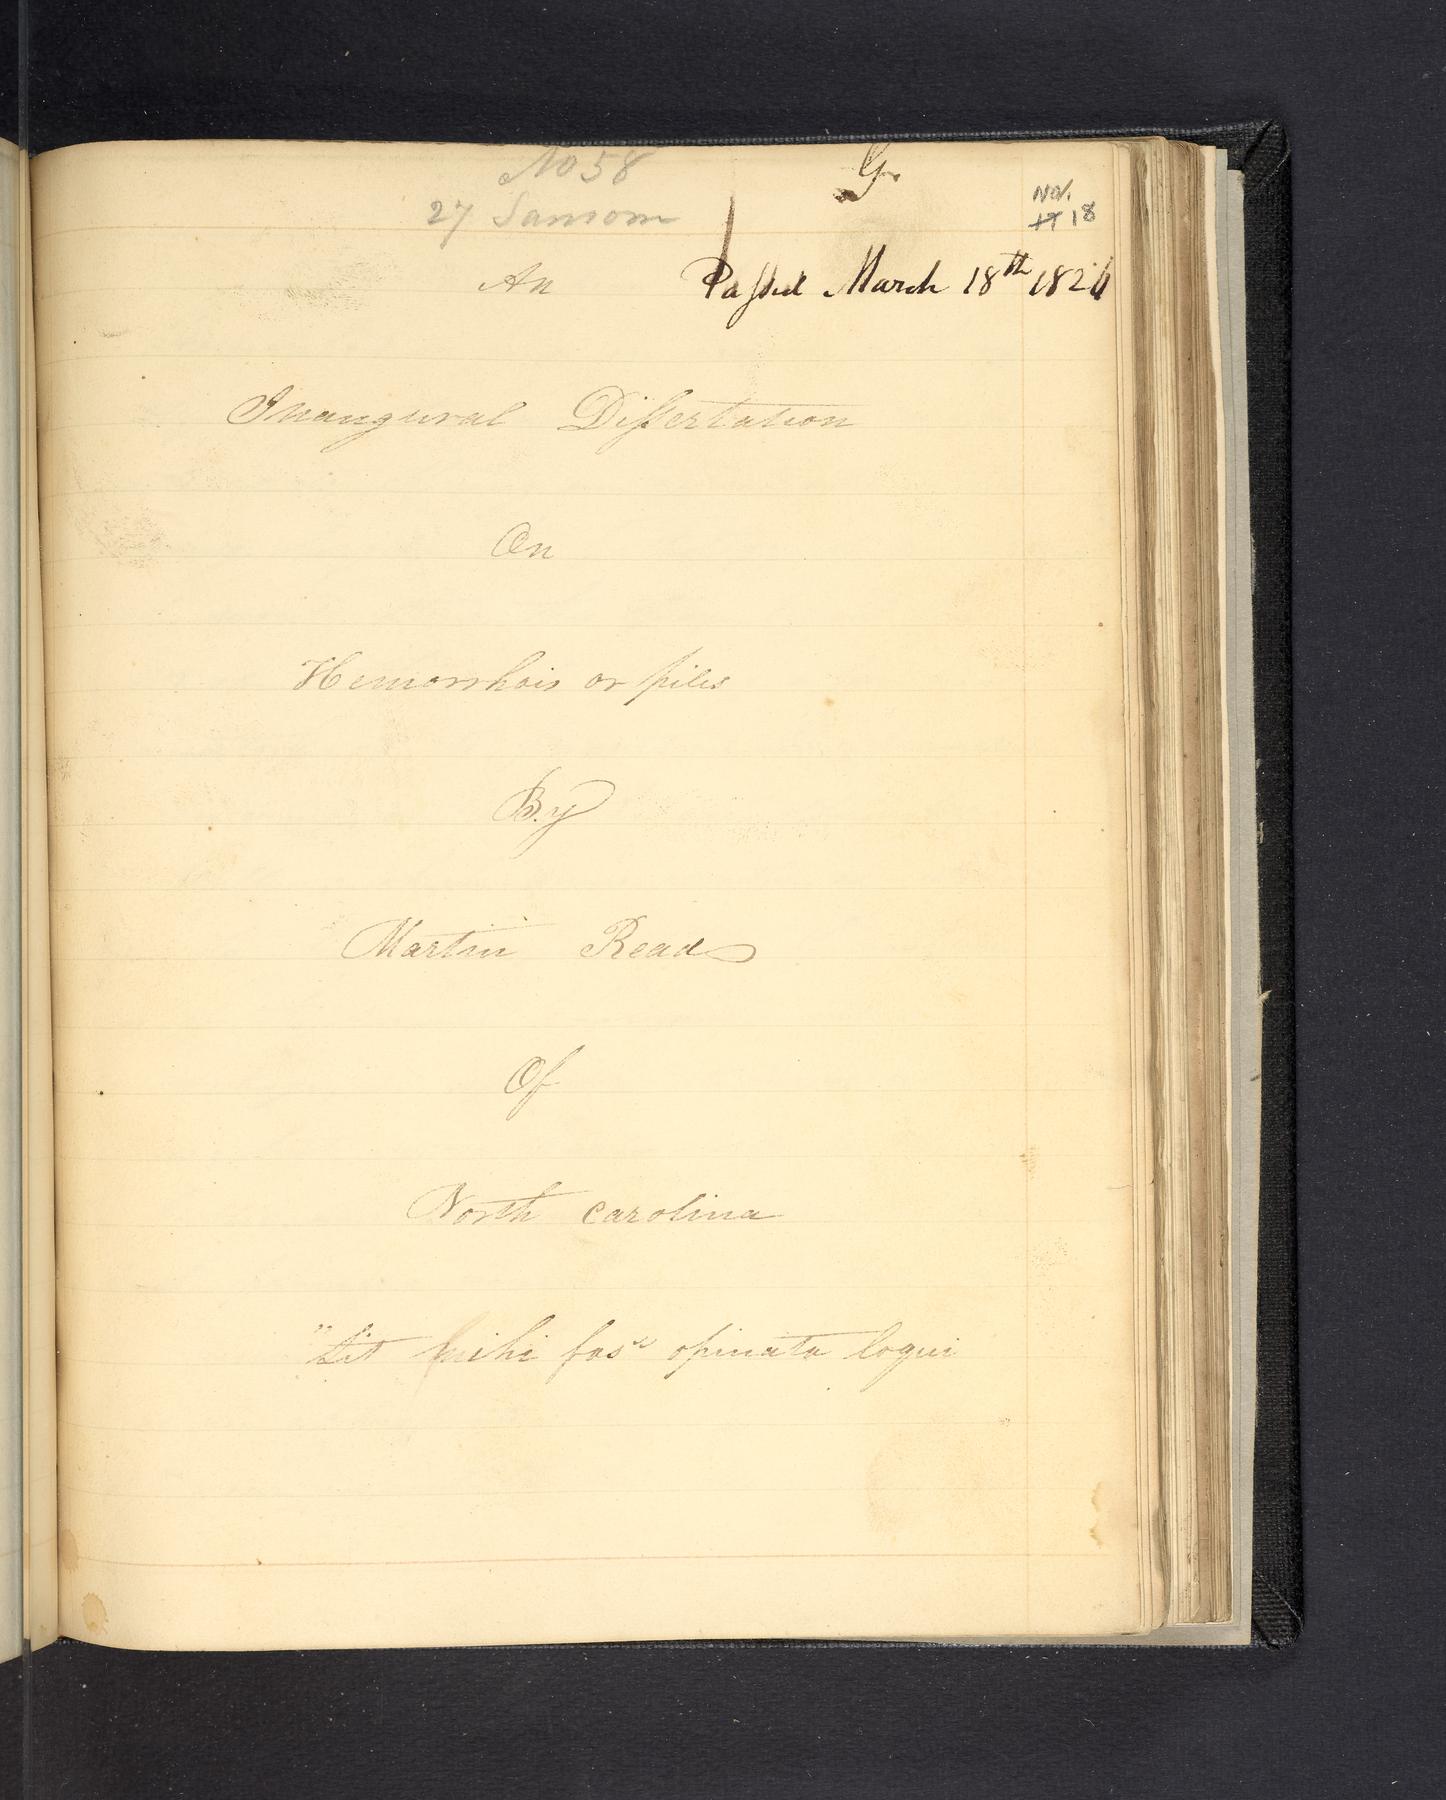 No 58
G.
Nov.
17 18
27 Sansom
An
Passed March 18th 1826
Inaugural Dissertation
On
Hemorrhois or piles
By
Martin Read
Of
North carolina
"Sit mihi fas" opinata loqui